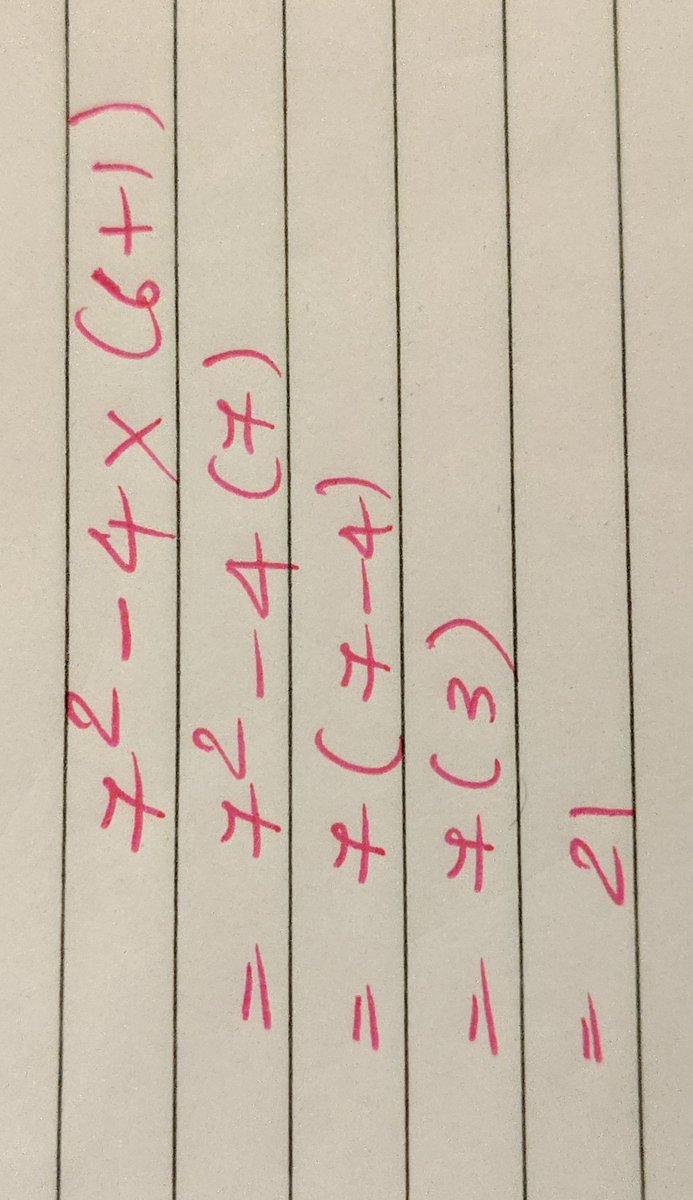 7² - 4 × (6+1)
= 7² - 4 (7)
= 7 (7-4)
= 7 (3)
= 21